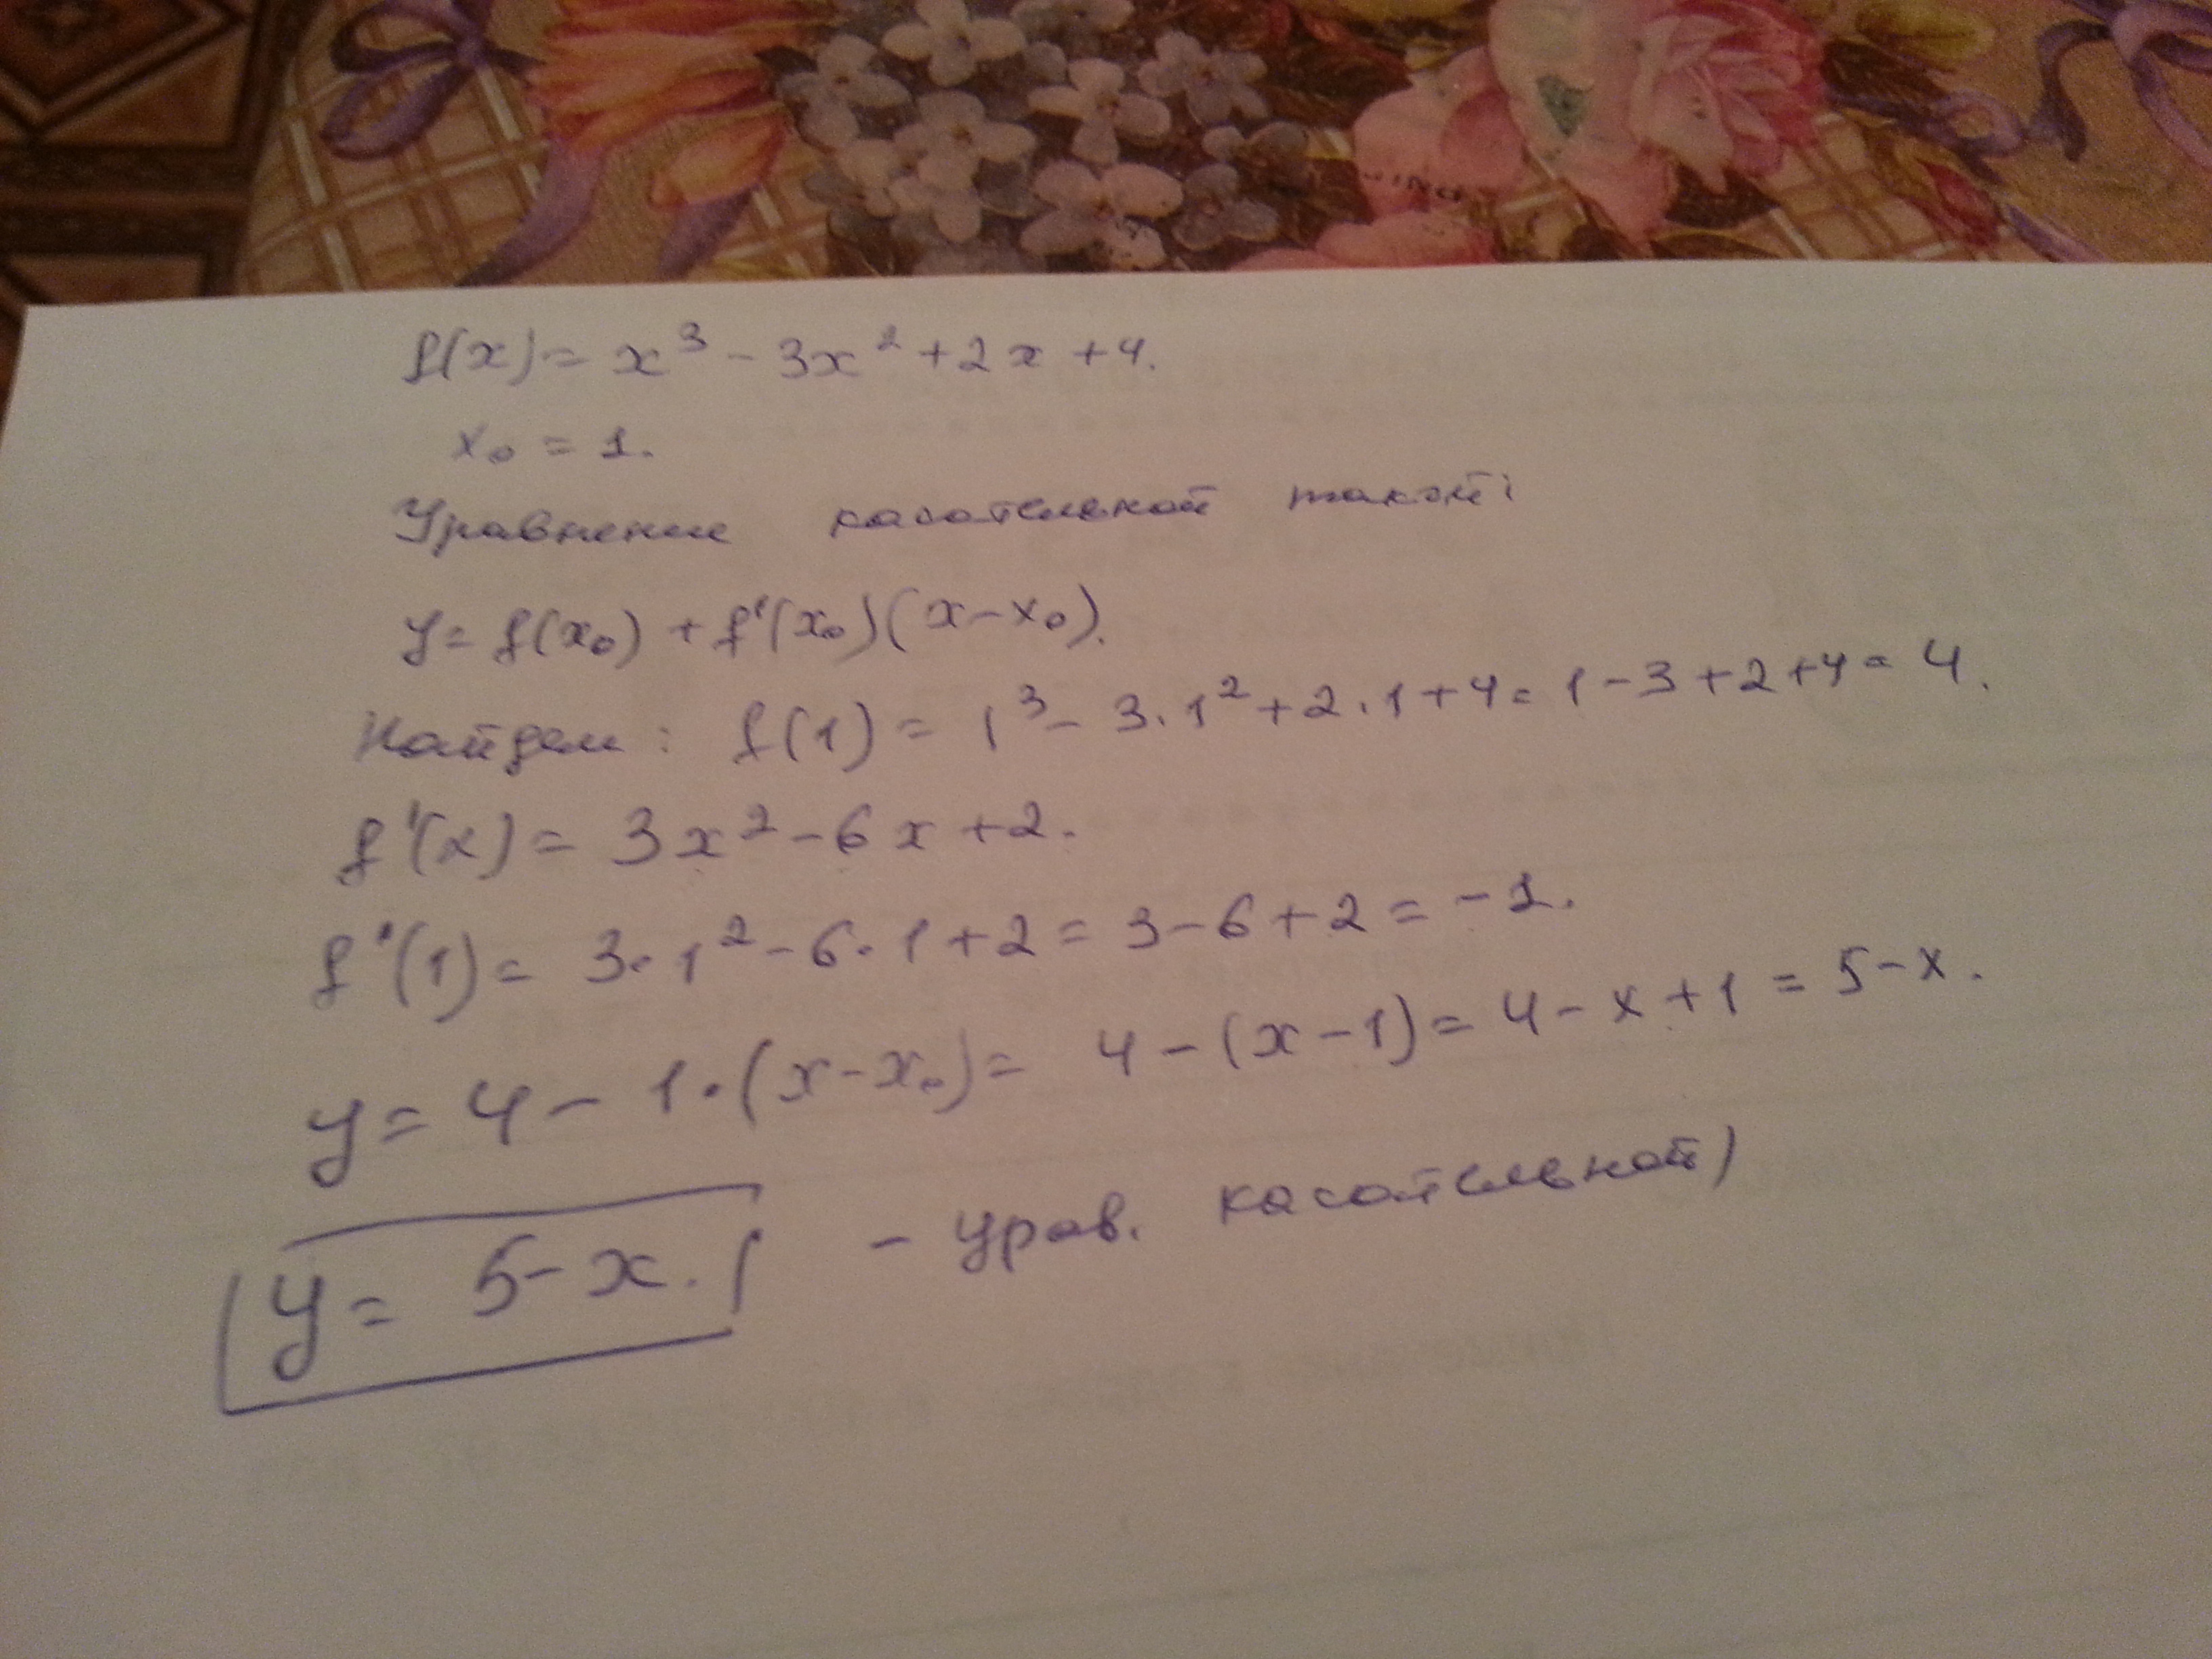 f(x) = x³ - 3x² + 2x + 4.
x₀ = 1.
Уравнение касательной такой:
y = f(x₀) + f'(x₀)(x - x₀).
Найдем: f(1) = 1³ - 3·1² + 2·1 + 4 = 1 - 3 + 2 + 4 = 4.
f'(x) = 3x² - 6x + 2.
f'(1) = 3·1² - 6·1 + 2 = 3 - 6 + 2 = -1.
y = 4 - 1·(x - x₀) = 4 - (x - 1) = 4 - x + 1 = 5 - x.
y = 5 - x. - урав. касательной)